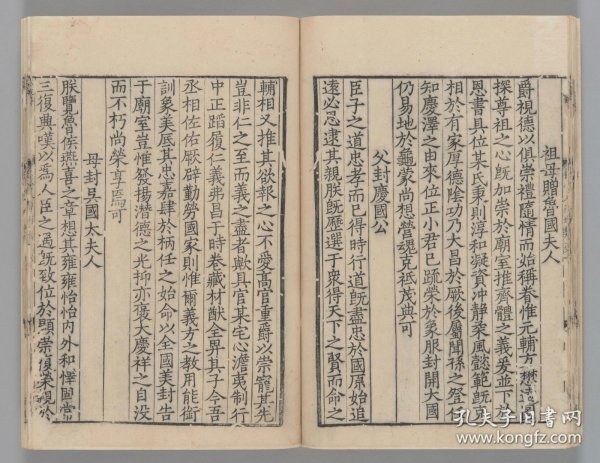 祖母贈魯國夫人
爵視德以俱崇禮隨情而始稱眷惟元輔方
探尊祖之心旣加崇於廟室推齊體之義爰並下於
恩書具位某氏秉則淳和凝資冲靜蘋風懿範旣
相於有家厚德陰功乃大昌于厥後屬聞孫之登任
知慶澤之由來位正小君已疏榮於象服封開大國
仍易地於龜蒙尚想營魂克祗茂典可
父封慶國公
臣子之道忠孝而已得時行道旣盡忠於國原始追
遠必思逮其親朕旣歷選于衆得天下之賢而命之
輔相又推其欲報之心不愛高官重爵以崇寵其先
豈非仁之至而義之盡者歟具官某宅心澹夷制行
中正蹈履仁義弗昌于時卷藏材猷全畀其子今吾
丞相佐佑厥辟勤勞國家則惟爾義方之教用能衒
訓象美厎其忠嘉肆於柄任之始命以全國美封告
于廟室豈惟發揚潛德之光抑亦褒大慶祥之自没
而不朽尚榮享焉可
母封吳國太夫人
朕覽魯侯燕喜之章想其雍雍怡怡内外和懌固嘗
三復典嘆以爲人臣之遇旣致位於顯崇復采親於
孔夫子旧书网
www.kongfz.com